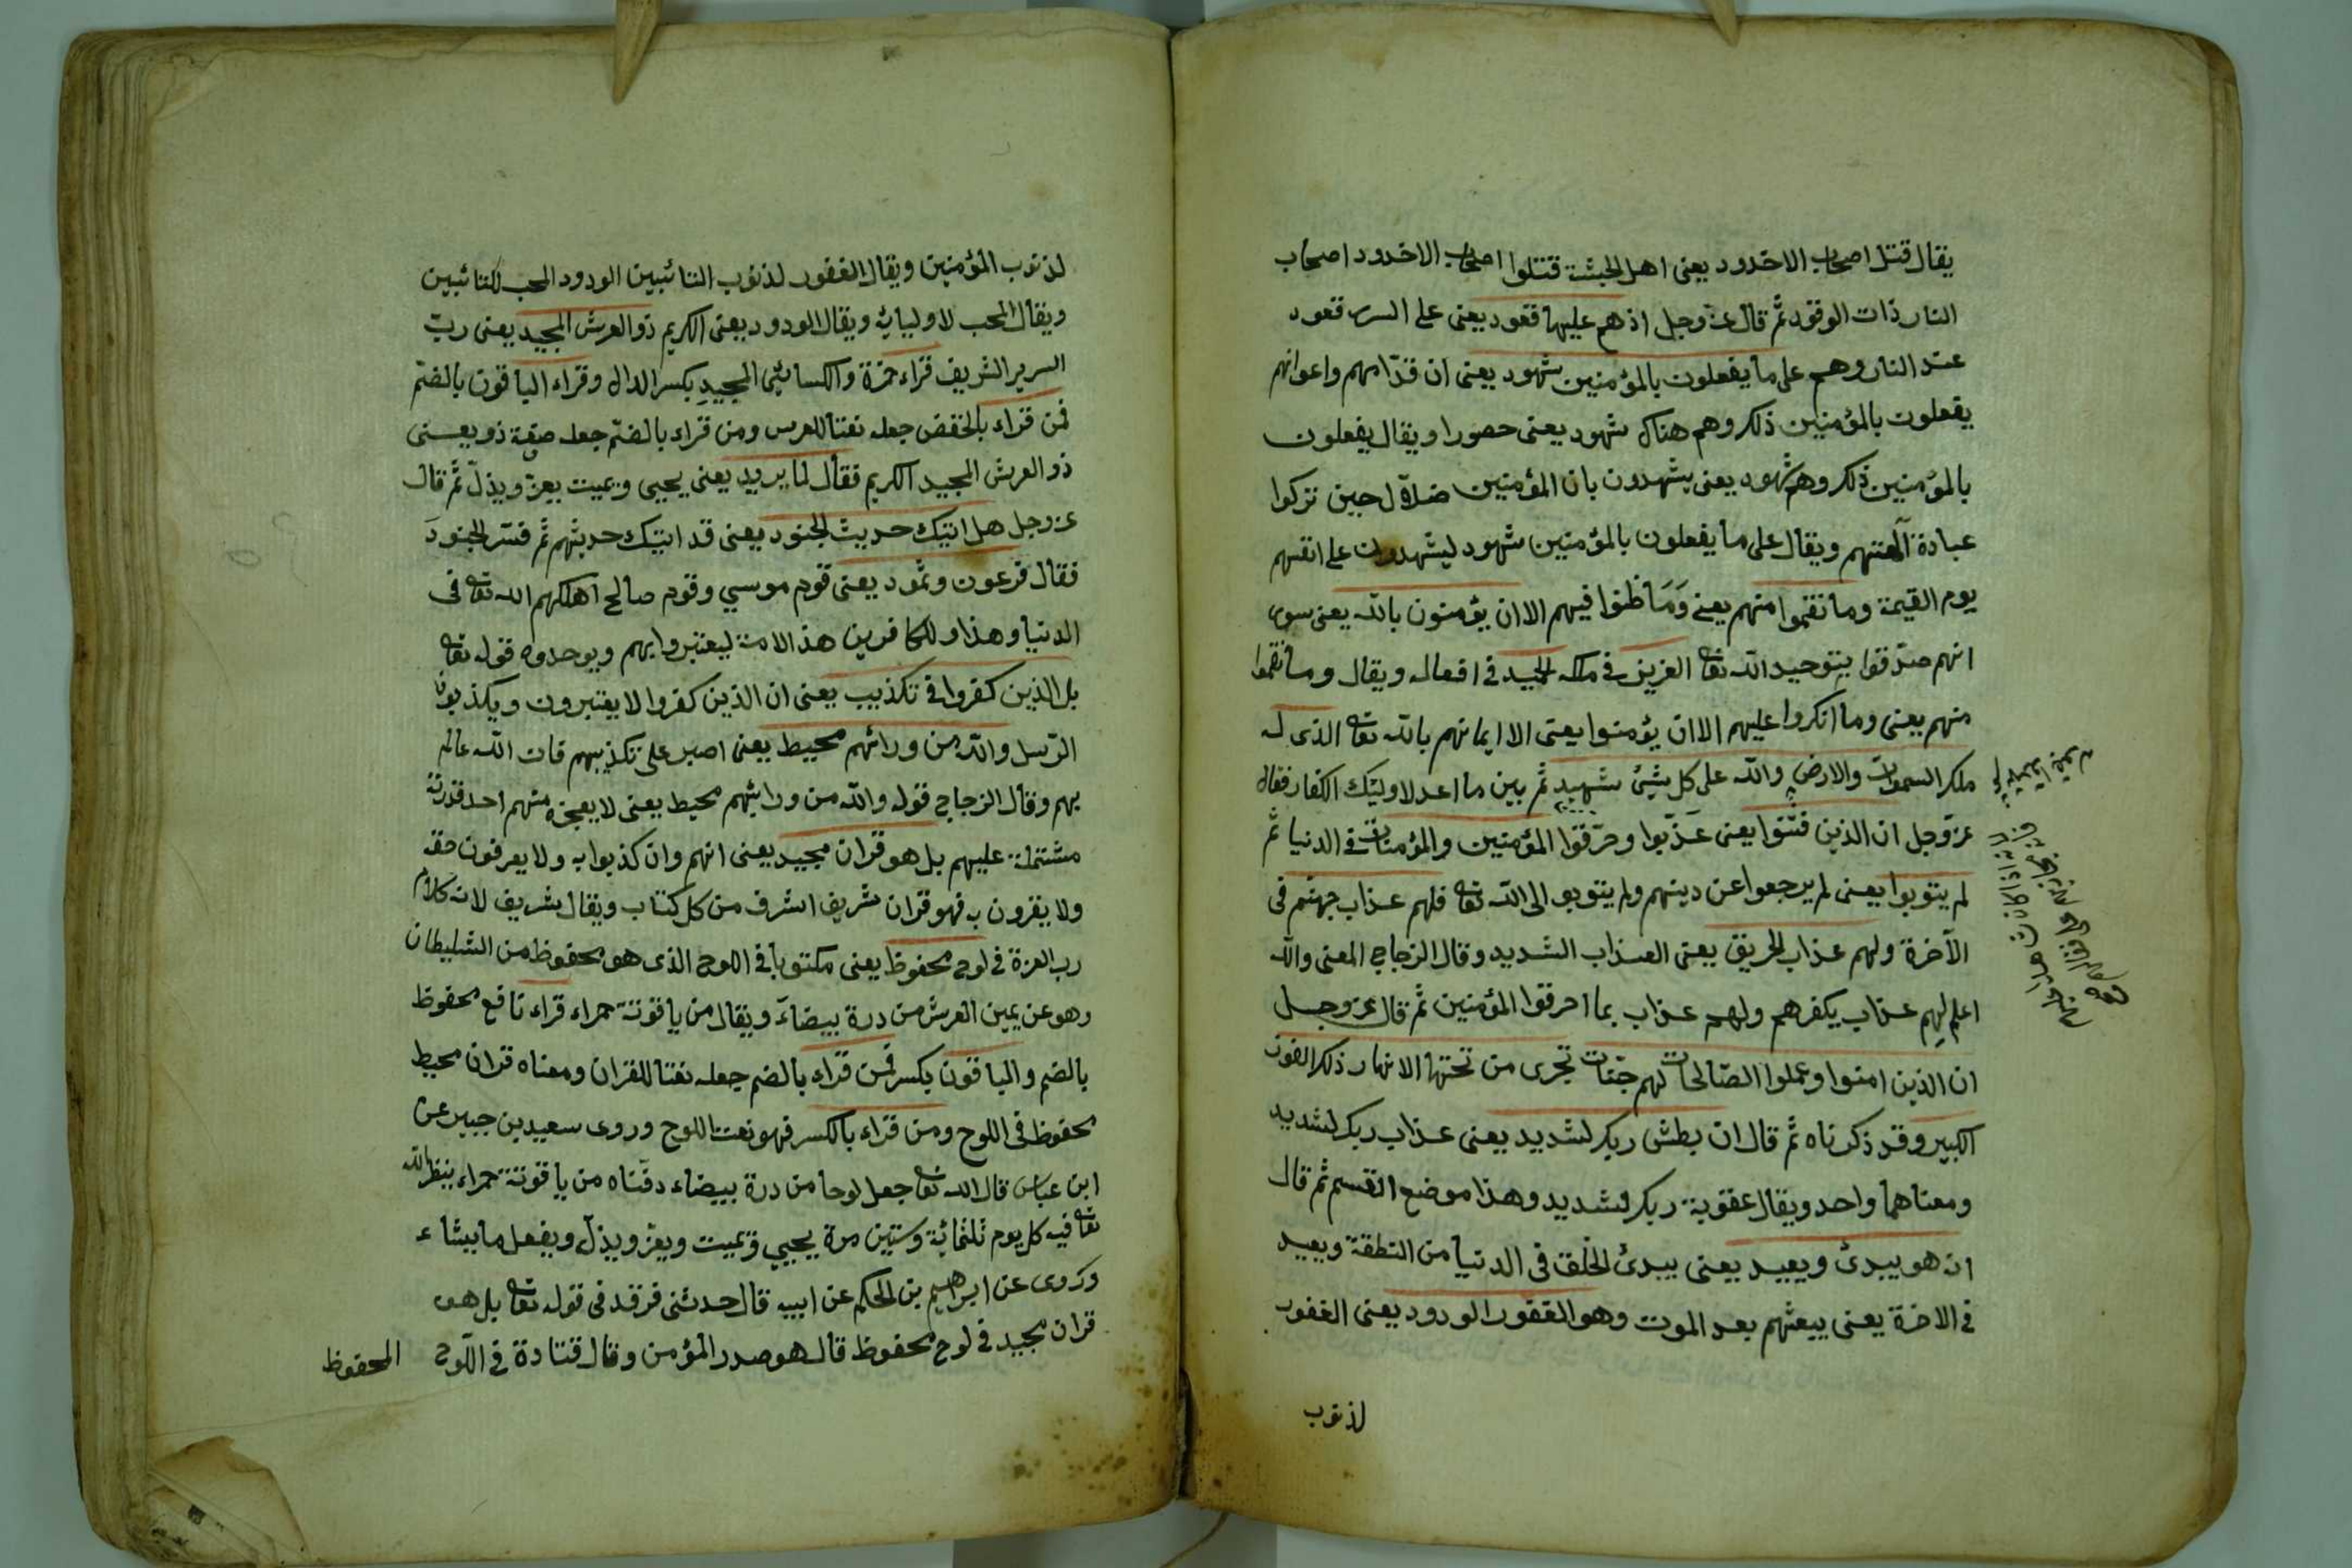 يقال قتل اصحاب الاخدود يعنى اهل الحبشة قتلوا اصحاب الاخدود اصحاب
النار ذات الوقود ثم قال عز وجل اذ هم عليها قعود يعنى على السرر قعود
عند النار وهم على ما يفعلون بالمؤمنين شهود يعنى ان قدّامهم واعوانهم
يفعلون بالمؤمنين ذلك وهم هناك شهود يعنى حضورا ويقال يفعلون
بالمؤمنين ذلك وهم شهود يعنى يشهدون بان المؤمنين ضلاّل حين تركوا
عبادة آلهتهم ويقال على ما يفعلون بالمؤمنين شهود ليشهدون على انفسهم
يوم القيمة وما نقموا منهم يعنى وَمَا طنوا فيهم الا ان يؤمنون بالله يعنى سوى
انهم صدّقوا بتوحيد الله تعا العزيز فى ملكه الحميد فى افعاله ويقال وما نقموا
منهم يعنى وما انكروا عليهم الا ان يؤمنوا يعنى الا ايمانهم بالله تعا الذى له
ملك السموات والارض والله على كل شيئ شهيد ثم بين ما اعد لاوليك الكفار فقال
عزّ وجل ان الذين فتنوا يعنى عَذّبوا وحرّقوا المؤمنين والمؤمنات فى الدنيا ثم
لم يتوبوا يعنى لم يرجعوا عن دينهم ولم يتوبو الى الله تعا فلهم عذاب جهنم فى
الآخرة ولهم عذاب الحريق يعنى العذاب الشديد وقال الزجاج المعنى والله
اعلم لهم عذاب بكفرهم ولهم عذاب بما احرقوا المؤمنين ثم قال عز وجل
ان الذين امنوا وعملوا الصّالحات لهم جنّات تجرى من تحتها الانهار ذلك الفوز
الكبير وقد ذكرناه ثم قال ان بطش ربك لشديد يعنى عذاب ربك لشديد
ومعناهما واحد ويقال عقوبة ربك لشديد وهذا موضع القسم ثم قال
انه هو يبدئ ويعيد يعنى يبدئ الخلق فى الدنيا من النطفة ويعيد
فى الاخرة يعنى يبعثهم بعد الموت وهو الغفور الودود يعنى الغفور
لذنوب
لذنوب المؤمنين ويقال الغفور لذنوب التائبين الودود المحب للتائبين
ويقال المحب لاوليائه ويقال الودود يعنى الكريم ذو العرش المجيد يعنى ربّ
السرير الشريف قراء حمزة والكسائي المجيدِ بكسر الدال وقراء الباقون بالضمّ
فمن قراء بالخفض جعله نعتا للعرس ومن قراء بالضمّ جعله صفة ذو يعنى
ذو العرش المجيد الكريم فقال لما يريد يعنى يحيى ويميت يعزّ ويذلّ ثم قال
عز وجل هل اتيك حديث الجنود يعنى قد اتيك حديثهم ثم فسّر الجنودَ
فقال فرعون وثمود يعنى قوم موسى وقوم صالح اهلكهم الله تعا فى
الدنيا وهذا وللكافرين هذ الامة ليعتبروا بهم ويوحدوه قوله تعا
بل الذين كفروا فى تكذيب يعنى ان الذين كفروا لا يعتبرون ويكذبون
الرّسل والله من ورائهم محيط يعنى اصبر على تكذيبهم فان الله عالم
بهم وقال الزجاج قوله والله من ورائهم محيط يعنى لا يعجزه منهم احد قدرته
مشتملة عليهم بل هو قران مجيد يعنى انهم وان كذبوا به ولا يعرفون حقه
ولا يقرون به فهو قران شريف اشرف من كل كتاب ويقال شريف لانه كلام
رب العزة فى لوح محفوظ يعنى مكتوبا فى اللوح الذى هو محفوظ من الشيطان
وهو عن يمين العرش من درة بيضاءَ ويقال من ياقوتة حمراء قراء نافع محفوظ
بالضم والباقون بكسر فمن قراء بالضم جعله نعتا للقران ومعناه قران محيط
محفوظ فى اللوح ومن قراء بالكسر فهو نعت اللوح وروى سعيد بن جبير عن
ابن عباس قال الله تعا جعل لوحا من درة بيضاء دفتاه من ياقوتة حمراء ينظر الله
تعا فيه كل يوم ثلثمائة وستين مرة يحيي ويميت ويعزّ ويذلّ ويفعل ما يشاء
وروى عن ابراهيم بن الحكم عن ابيه قال حدثنى فرقد فى قوله تعا بل هو
قران مجيد فى لوح محفوظ قال هو صدر المؤمن وقال قتادة فى اللّوح
المحفوظ